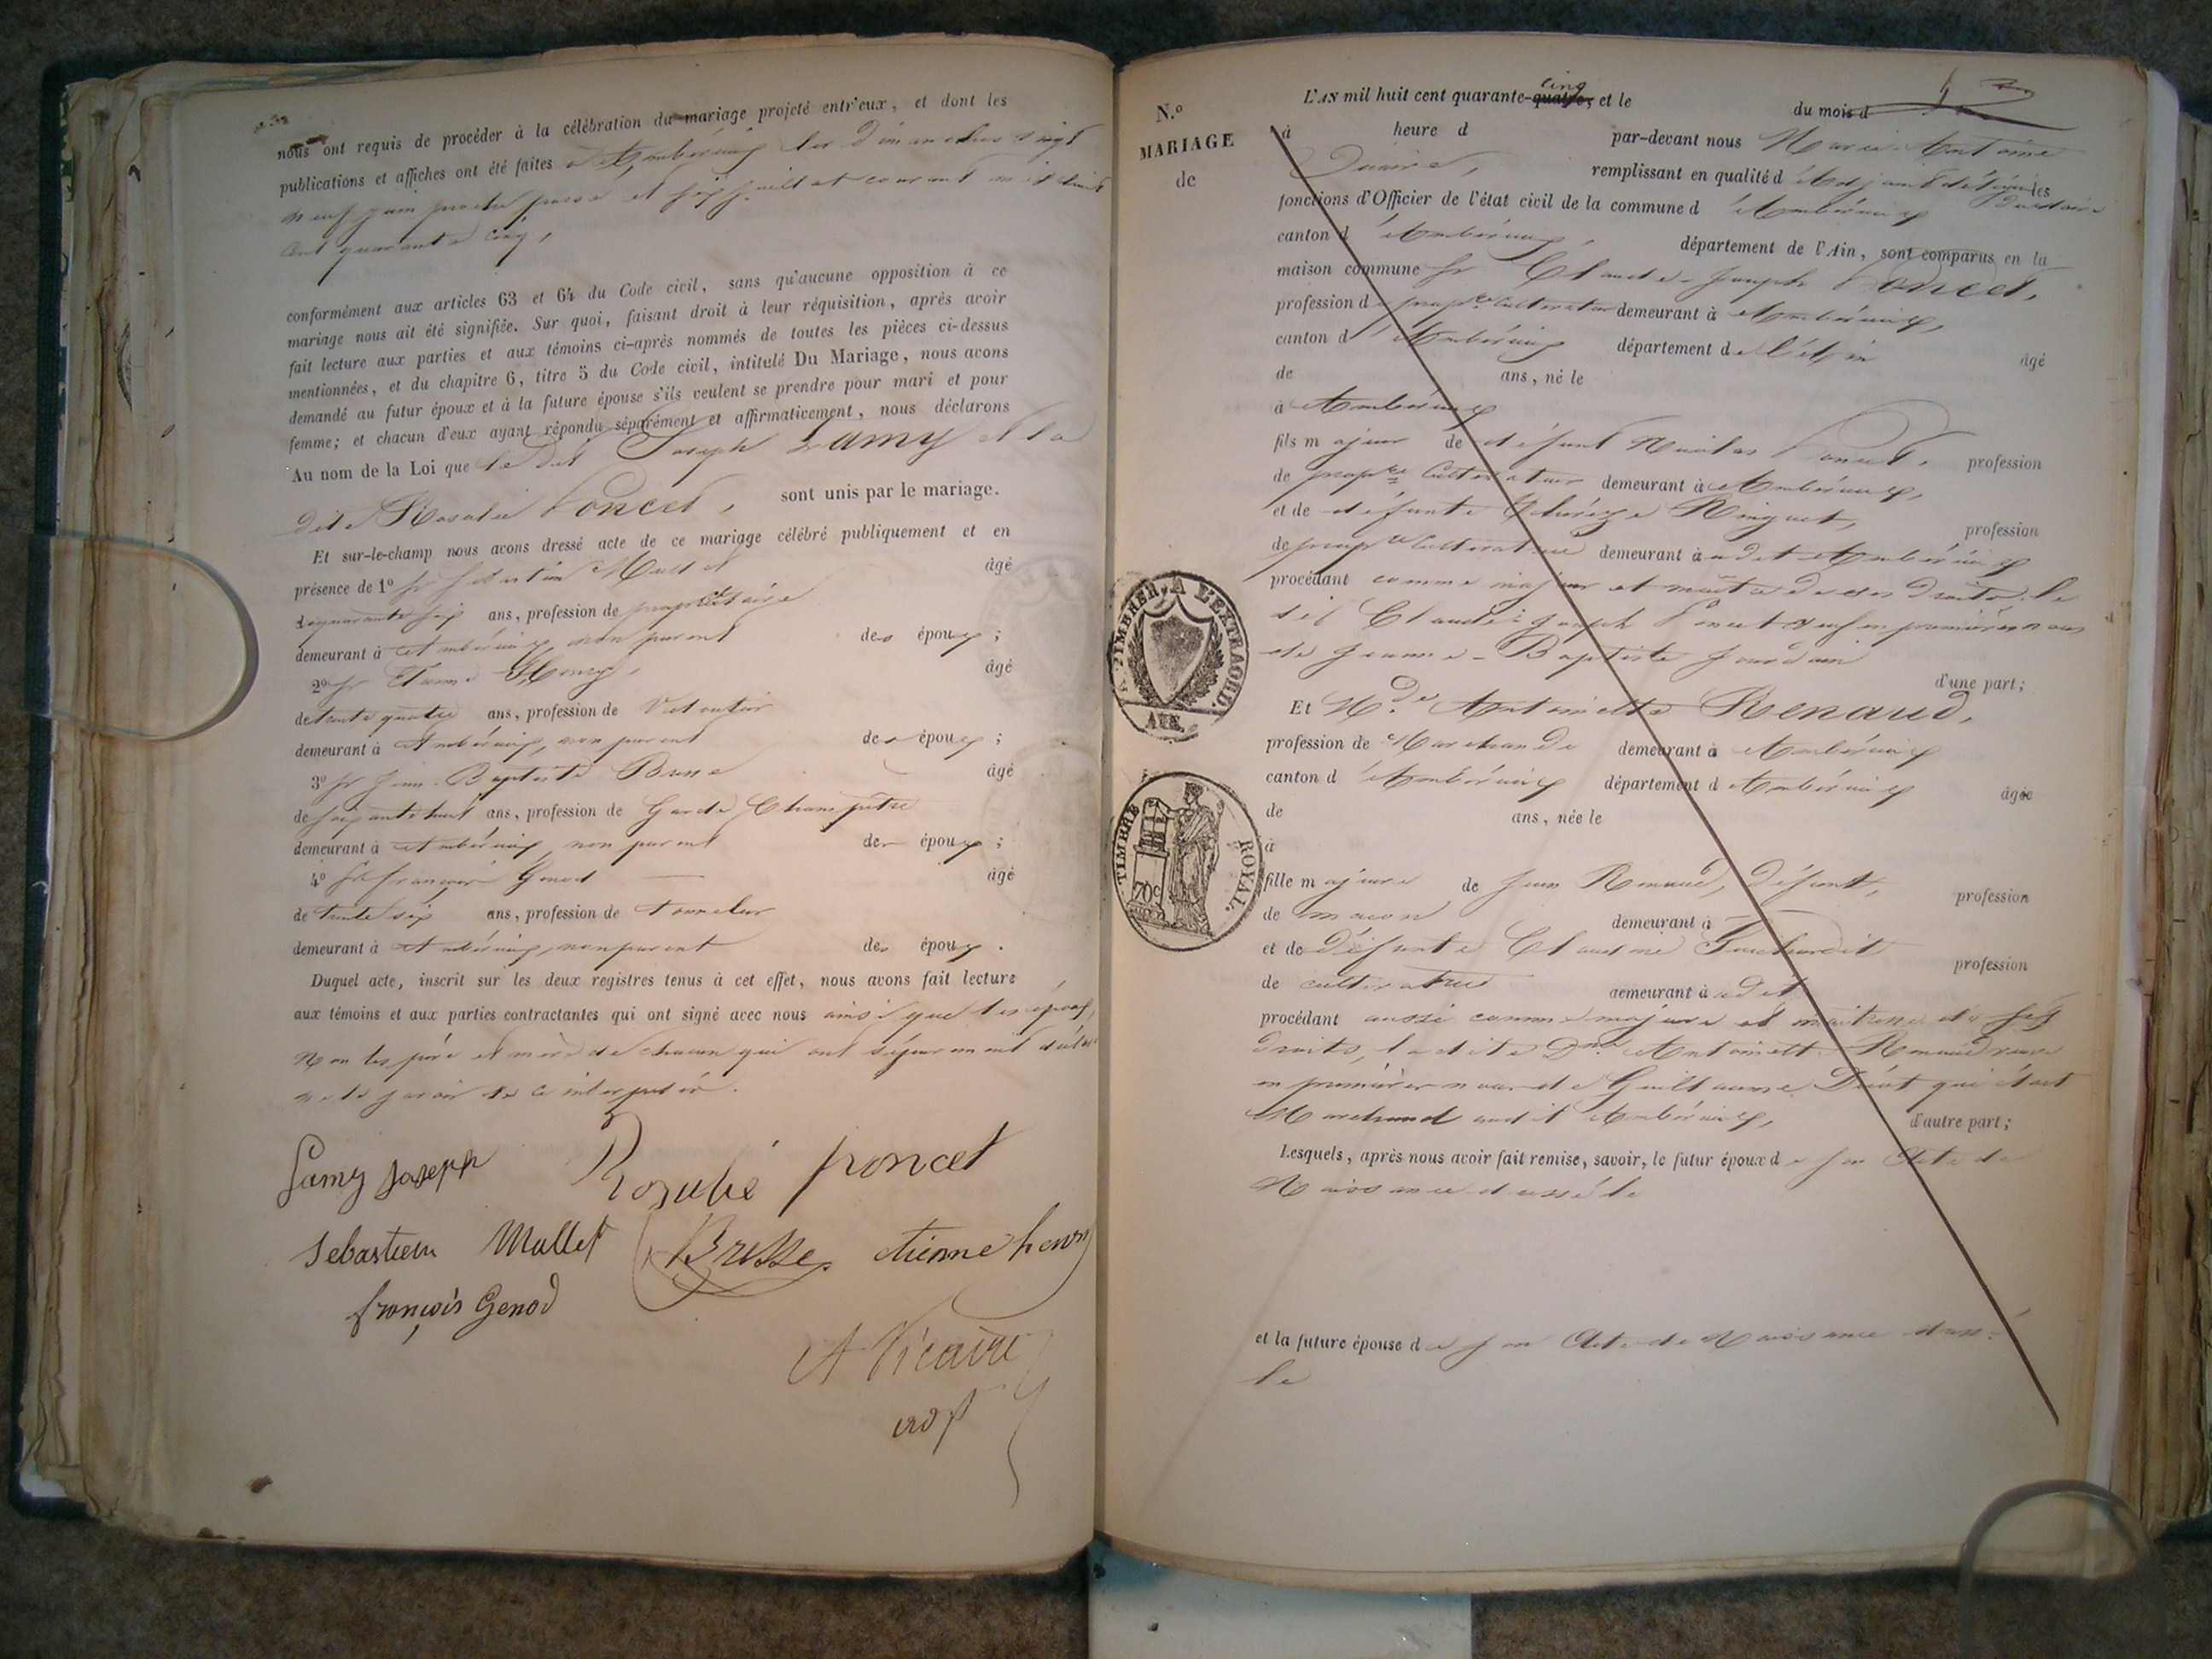 nous ont requis de procéder à la célébration du mariage projeté entr'eux, et dont les
publications et affiches ont été faites à Ambérieux les dimanches vingt
neuf juin proche passé et six juillet courant mil huit
cent quarante cinq,
conformément aux articles 63 et 64 du Code civil, sans qu'aucune opposition à ce
mariage nous ait été signifiée. Sur quoi, faisant droit à leur réquisition, après avoir
fait lecture aux parties et aux témoins ci-après nommés de toutes les pièces ci-dessus
mentionnées, et du chapitre 6, titre 5 du Code civil, intitulé Du Mariage, nous avons
demandé au futur époux et à la future épouse s'ils veulent se prendre pour mari et pour
femme; et chacun d'eux ayant répondu séparément et affirmativement, nous déclarons
Au nom de la Loi que le dit Joseph Lamy et la
dite Rosalie Poncet, sont unis par le mariage.
Et sur-le-champ nous avons dressé acte de ce mariage célébré publiquement et en
présence de 1º Sr Sébastien Mallet âgé
de quarante six ans, profession de propriétaire
demeurant à Ambérieux, non parent des époux;
2º Sr Etienne Henry, âgé
de trente quatre ans, profession de
demeurant à Ambérieux, non parent des époux;
3º Sr Jean-Baptiste Bresse âgé
de soixante huit ans, profession de Garde Champêtre
demeurant à Ambérieux, non parent des époux;
4º Sr François Genod âgé
de trente six ans, profession de tonnelier
demeurant à Ambérieux, non parent des époux.
Duquel acte, inscrit sur les deux registres tenus à cet effet, nous avons fait lecture
aux témoins et aux parties contractantes qui ont signé avec nous ainsi que les époux,
non les père et mère de chacun qui ont séparément déclaré
ne le savoir de ce interpellés.
Lamy Joseph Rosalie poncet
Sebastien Mallet Bresse etienne henry
françois Genod
A Vicaire
adjt
N.º
MARIAGE
de
L'AN mil huit cent quarante-quatre, cinq et le du mois d
à heure d par-devant nous Marie Antoine
Vicaire, remplissant en qualité d'Adjoint délégué les
fonctions d'Officier de l'état civil de la commune d'Ambérieux
canton d'Ambérieux, département de l'Ain, sont comparus en la
maison commune Sr Claude-Joseph Poncet,
profession de propre cultivateur demeurant à Ambérieux,
canton d'Ambérieux département de l'Ain âgé
de ans, né le
à Ambérieux
fils majeur de défunt Nicolas Poncet, profession
de propre cultivateur demeurant à Ambérieux,
et de défunte Thérèze Ringuet, profession
de propre cultivatrice demeurant à audit Ambérieux
procédant comme majeur et maître de ses droits, le
dit Claude-Joseph Poncet veuf en premières noces
de Jeanne-Baptiste Jourdain
d'une part;
Et Mde Antoinette Renaud,
profession de Marchande demeurant à Ambérieux
canton d'Ambérieux département d Ambérieux âgée
de ans, née le
à
fille majeure de Jean Renaud, défunt, profession
de maçon demeurant à
et de défunte Claudine profession
de cultivatrice demeurant à audit
procédant aussi comme majeure et maîtresse de ses
droits, ladite Dme Antoinette Renaud veuve
en premières noces de Guillaume qui était
Marchand audit Ambérieux, d'autre part;
Lesquels, après nous avoir fait remise, savoir, le futur époux de son Acte de
Naissance dressé le
et la future épouse de son Acte de Naissance dressé
le
TIMBRER A L'EXTRAORD.
AIN.
TIMBRE ROYAL.
70c